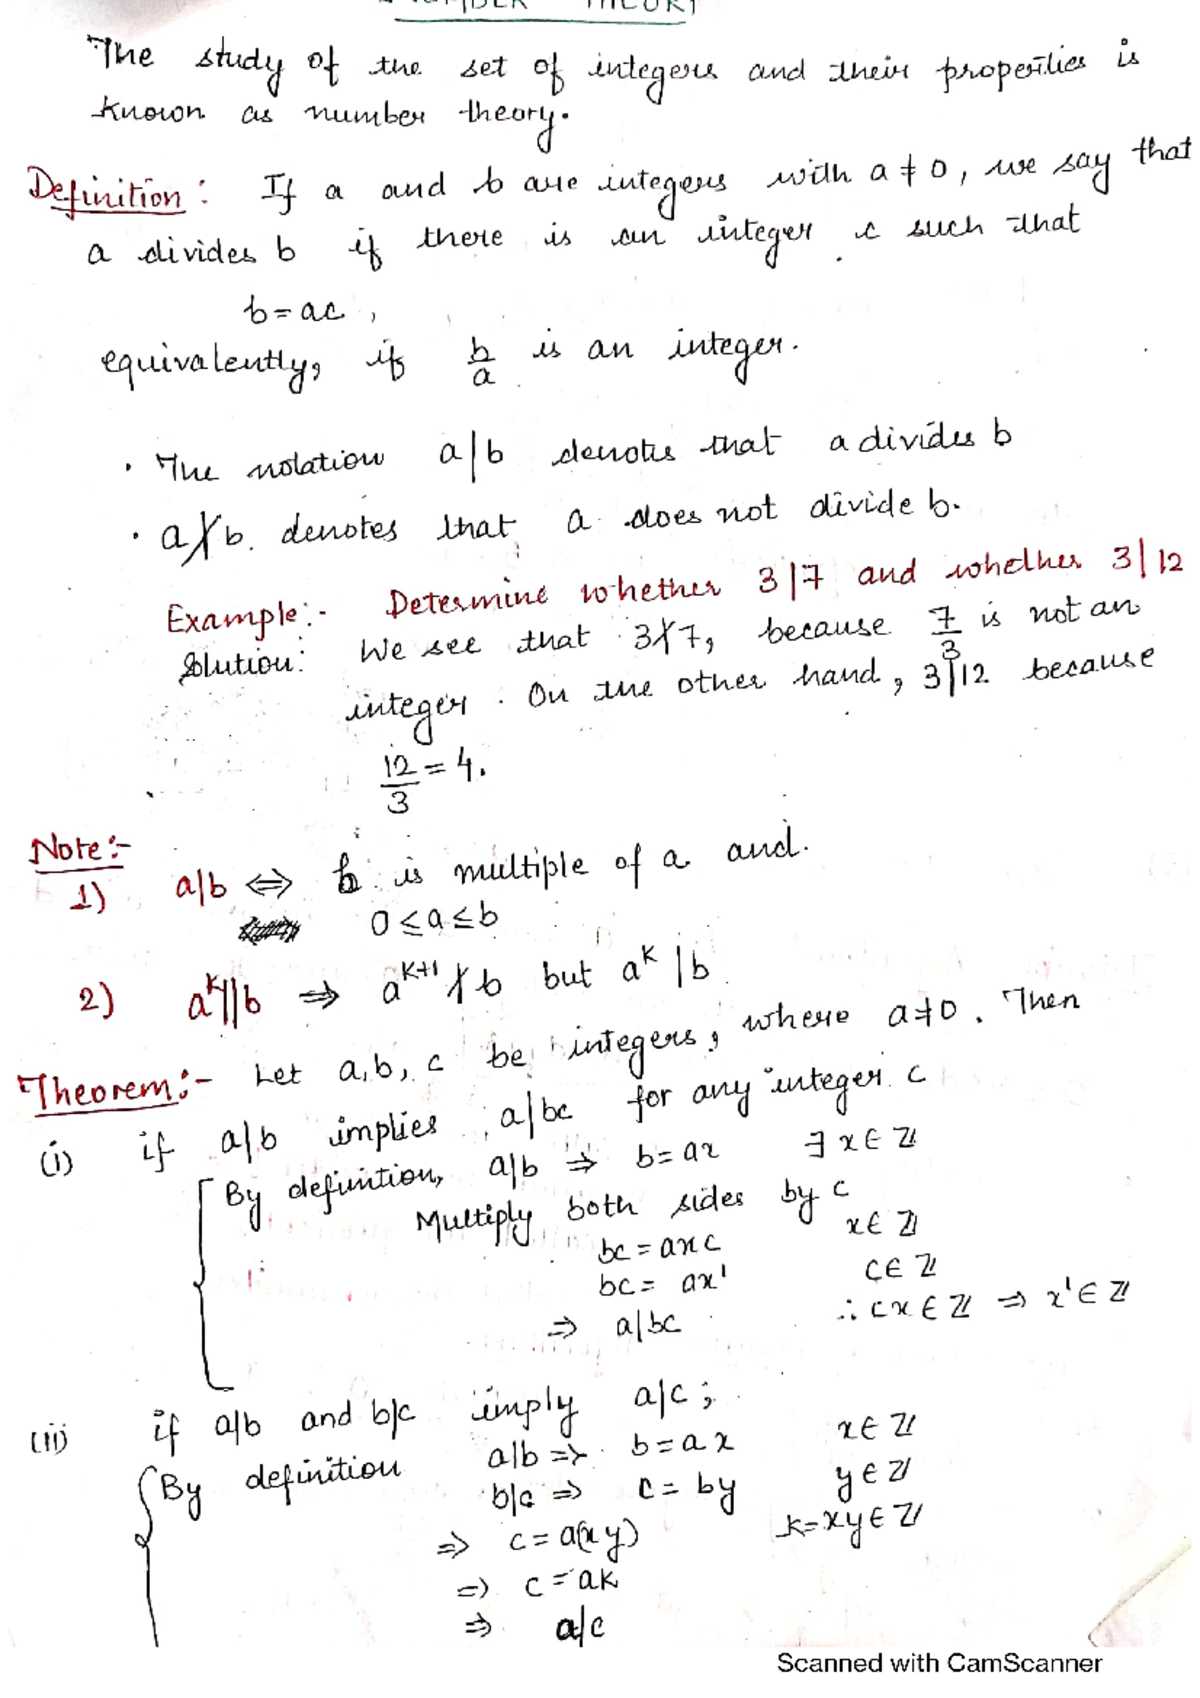 NUMBER THEORY
The study of the set of integers and their properties is
known as number theory.
Definition: If a and b are integers with a ≠ 0, we say that
a divides b if there is an integer c such that
b = ac,
equivalently, if b/a is an integer.
• The notation a|b denotes that a divides b
• a∤b. denotes that a does not divide b.
Example:- Determine whether 3|7 and whether 3|12
Solution: We see that 3∤7, because 7/3 is not an
integer. On the other hand, 3|12 because
12/3 = 4.
Note:-
1) a|b ⇔ b is multiple of a and.
0 ≤ a ≤ b
2) a^k||b ⇒ a^(k+1) ∤ b but a^k | b
Theorem:- Let a, b, c be integers, where a ≠ 0. Then
(i) if a|b implies a|bc for any integer c
By definition, a|b ⇒ b = ax ∃ x ∈ ℤ
Multiply both sides by c
bc = axc x ∈ ℤ
bc = ax' c ∈ ℤ
⇒ a|bc ∴ cx ∈ ℤ ⇒ x' ∈ ℤ
(ii) if a|b and b|c imply a|c;
By definition a|b ⇒ b = ax x ∈ ℤ
b|c ⇒ c = by y ∈ ℤ
⇒ c = a(xy) k = xy ∈ ℤ
⇒ c = ak
⇒ a|c
Scanned with CamScanner